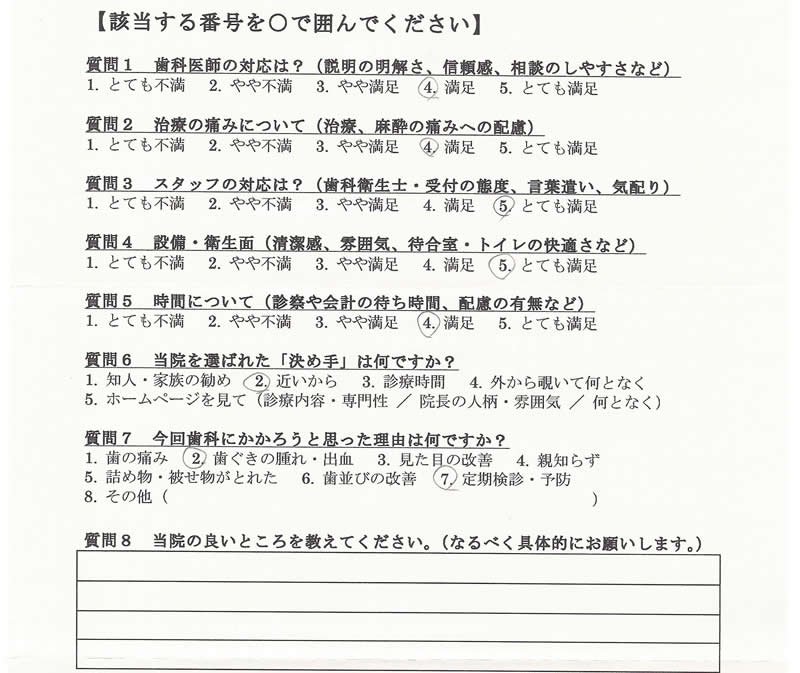 【該当する番号を〇で囲んでください】
質問1 歯科医師の対応は?(説明の明解さ、信頼感、相談のしやすさなど)
1. とても不満 2. やや不満 3. やや満足 4. 満足 5. とても満足
質問2 治療の痛みについて(治療、麻酔の痛みへの配慮)
1. とても不満 2. やや不満 3. やや満足 4. 満足 5. とても満足
質問3 スタッフの対応は?(歯科衛生士・受付の態度、言葉遣い、気配り)
1. とても不満 2. やや不満 3. やや満足 4. 満足 5. とても満足
質問4 設備・衛生面(清潔感、雰囲気、待合室・トイレの快適さなど)
1. とても不満 2. やや不満 3. やや満足 4. 満足 5. とても満足
質問5 時間について(診察や会計の待ち時間、配慮の有無など)
1. とても不満 2. やや不満 3. やや満足 4. 満足 5. とても満足
質問6 当院を選ばれた「決め手」は何ですか?
1. 知人・家族の勧め 2. 近いから 3. 診療時間 4. 外から覗いて何となく
5. ホームページを見て(診療内容・専門性 / 院長の人柄・雰囲気 / 何となく)
質問7 今回歯科にかかろうと思った理由は何ですか?
1. 歯の痛み 2. 歯ぐきの腫れ・出血 3. 見た目の改善 4. 親知らず
5. 詰め物・被せ物がとれた 6. 歯並びの改善 7. 定期検診・予防
8. その他( )
質問8 当院の良いところを教えてください。(なるべく具体的にお願いします。)